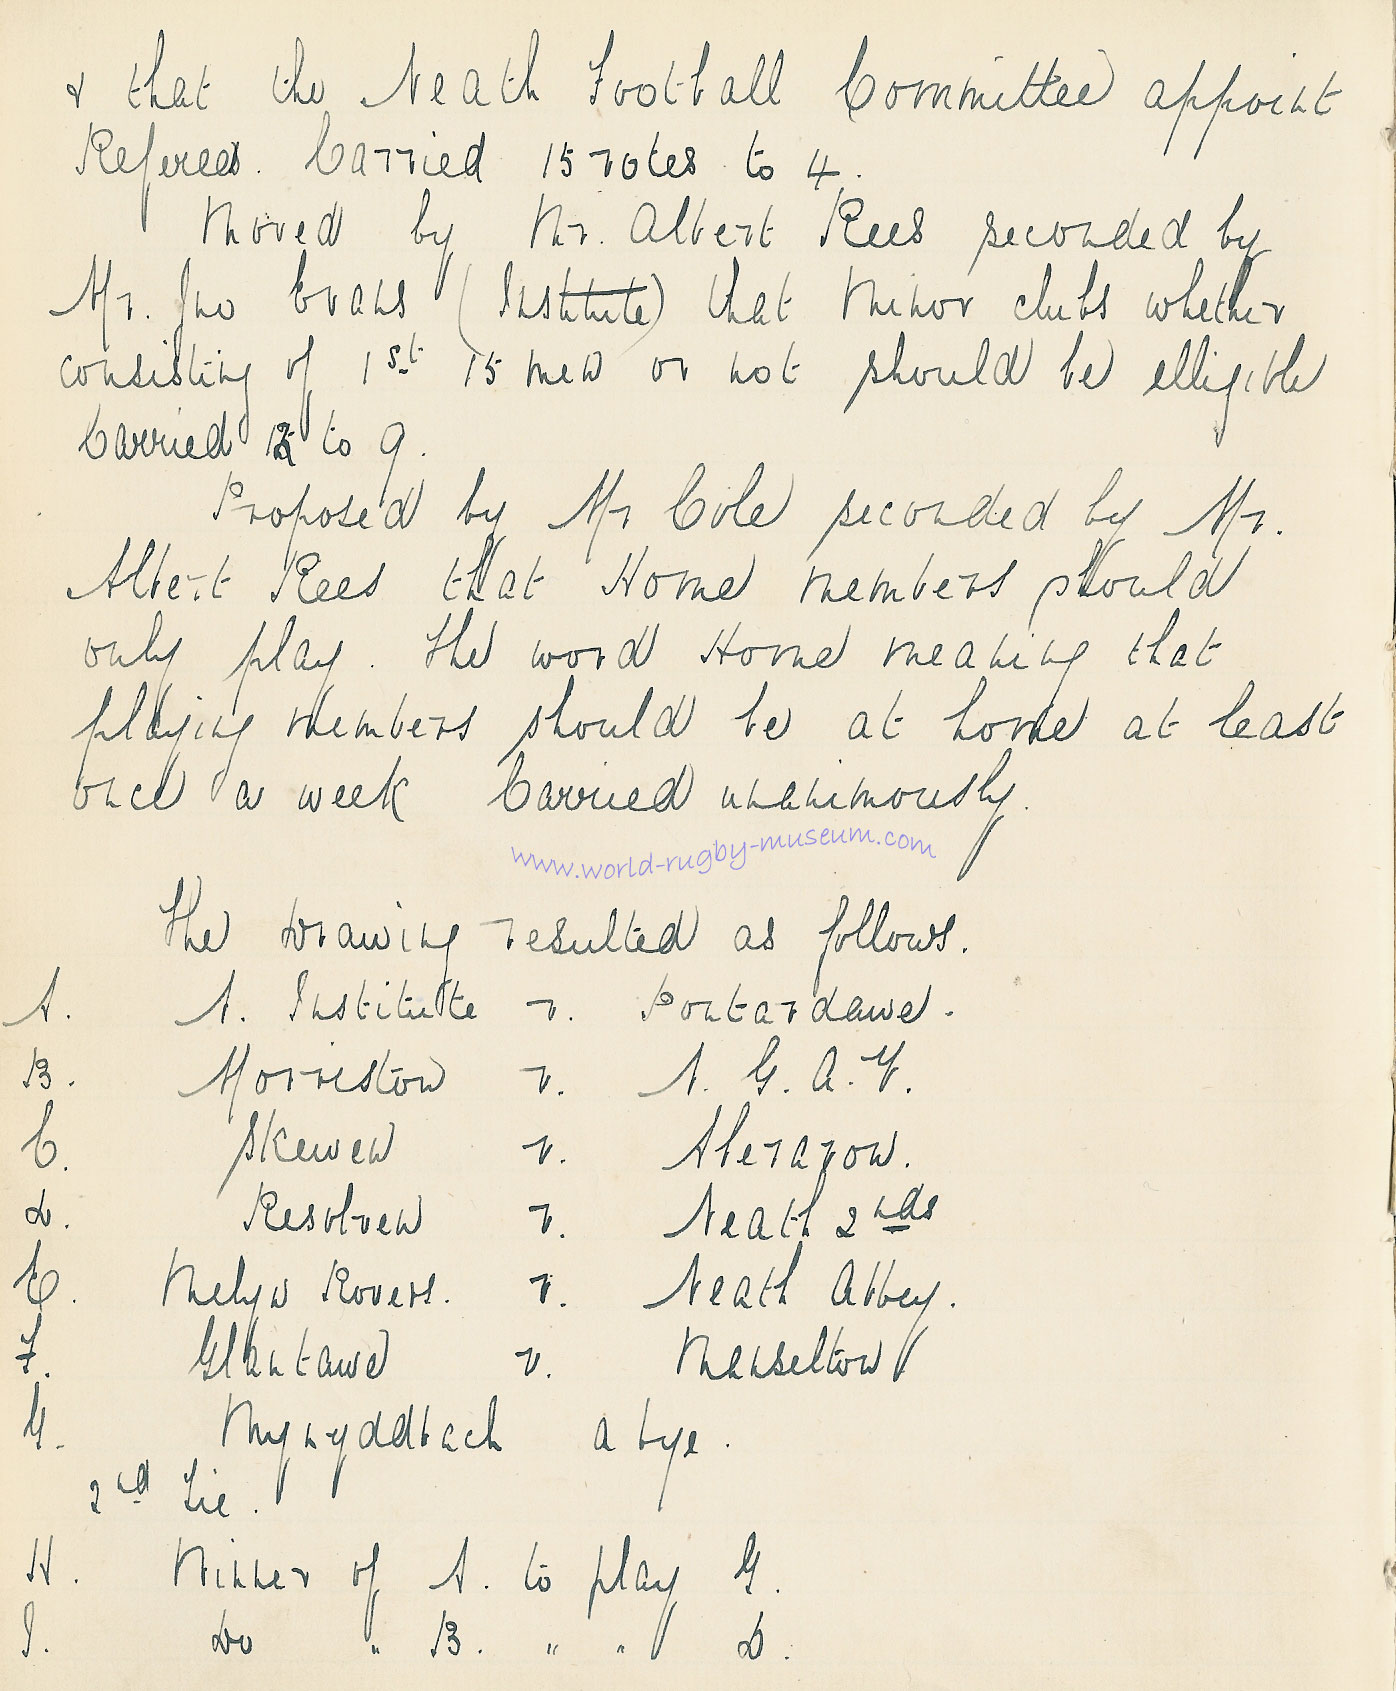 & that the Neath Football Committee appoint
Referees. Carried 15 votes to 4.
Moved by Mr. Albert Rees seconded by
Mr. Jno Evans (Institute) that Minor clubs whether
consisting of 1st 15 men or not should be elligible
Carried to 9.
Proposed by Mr Cole seconded by Mr.
Albert Rees that Home members should
only play. The word Home meaning that
playing members should be at home at least
once a week Carried unanimously.
www.world-rugby-museum.com
The Drawing resulted as follows.
A. N. Institute v. Pontardawe.
B. Morriston v. N. G. A. Y.
C. Skewen v. Aberavon.
D. Resolven v. Neath 2nds
E. Melyn Rovers. v. Neath Abbey.
F. Glantawe v. Manselton
G. Mynyddbach a bye.
2nd Tie.
H. Winner of A. to play G.
I. Do " B. " " D.